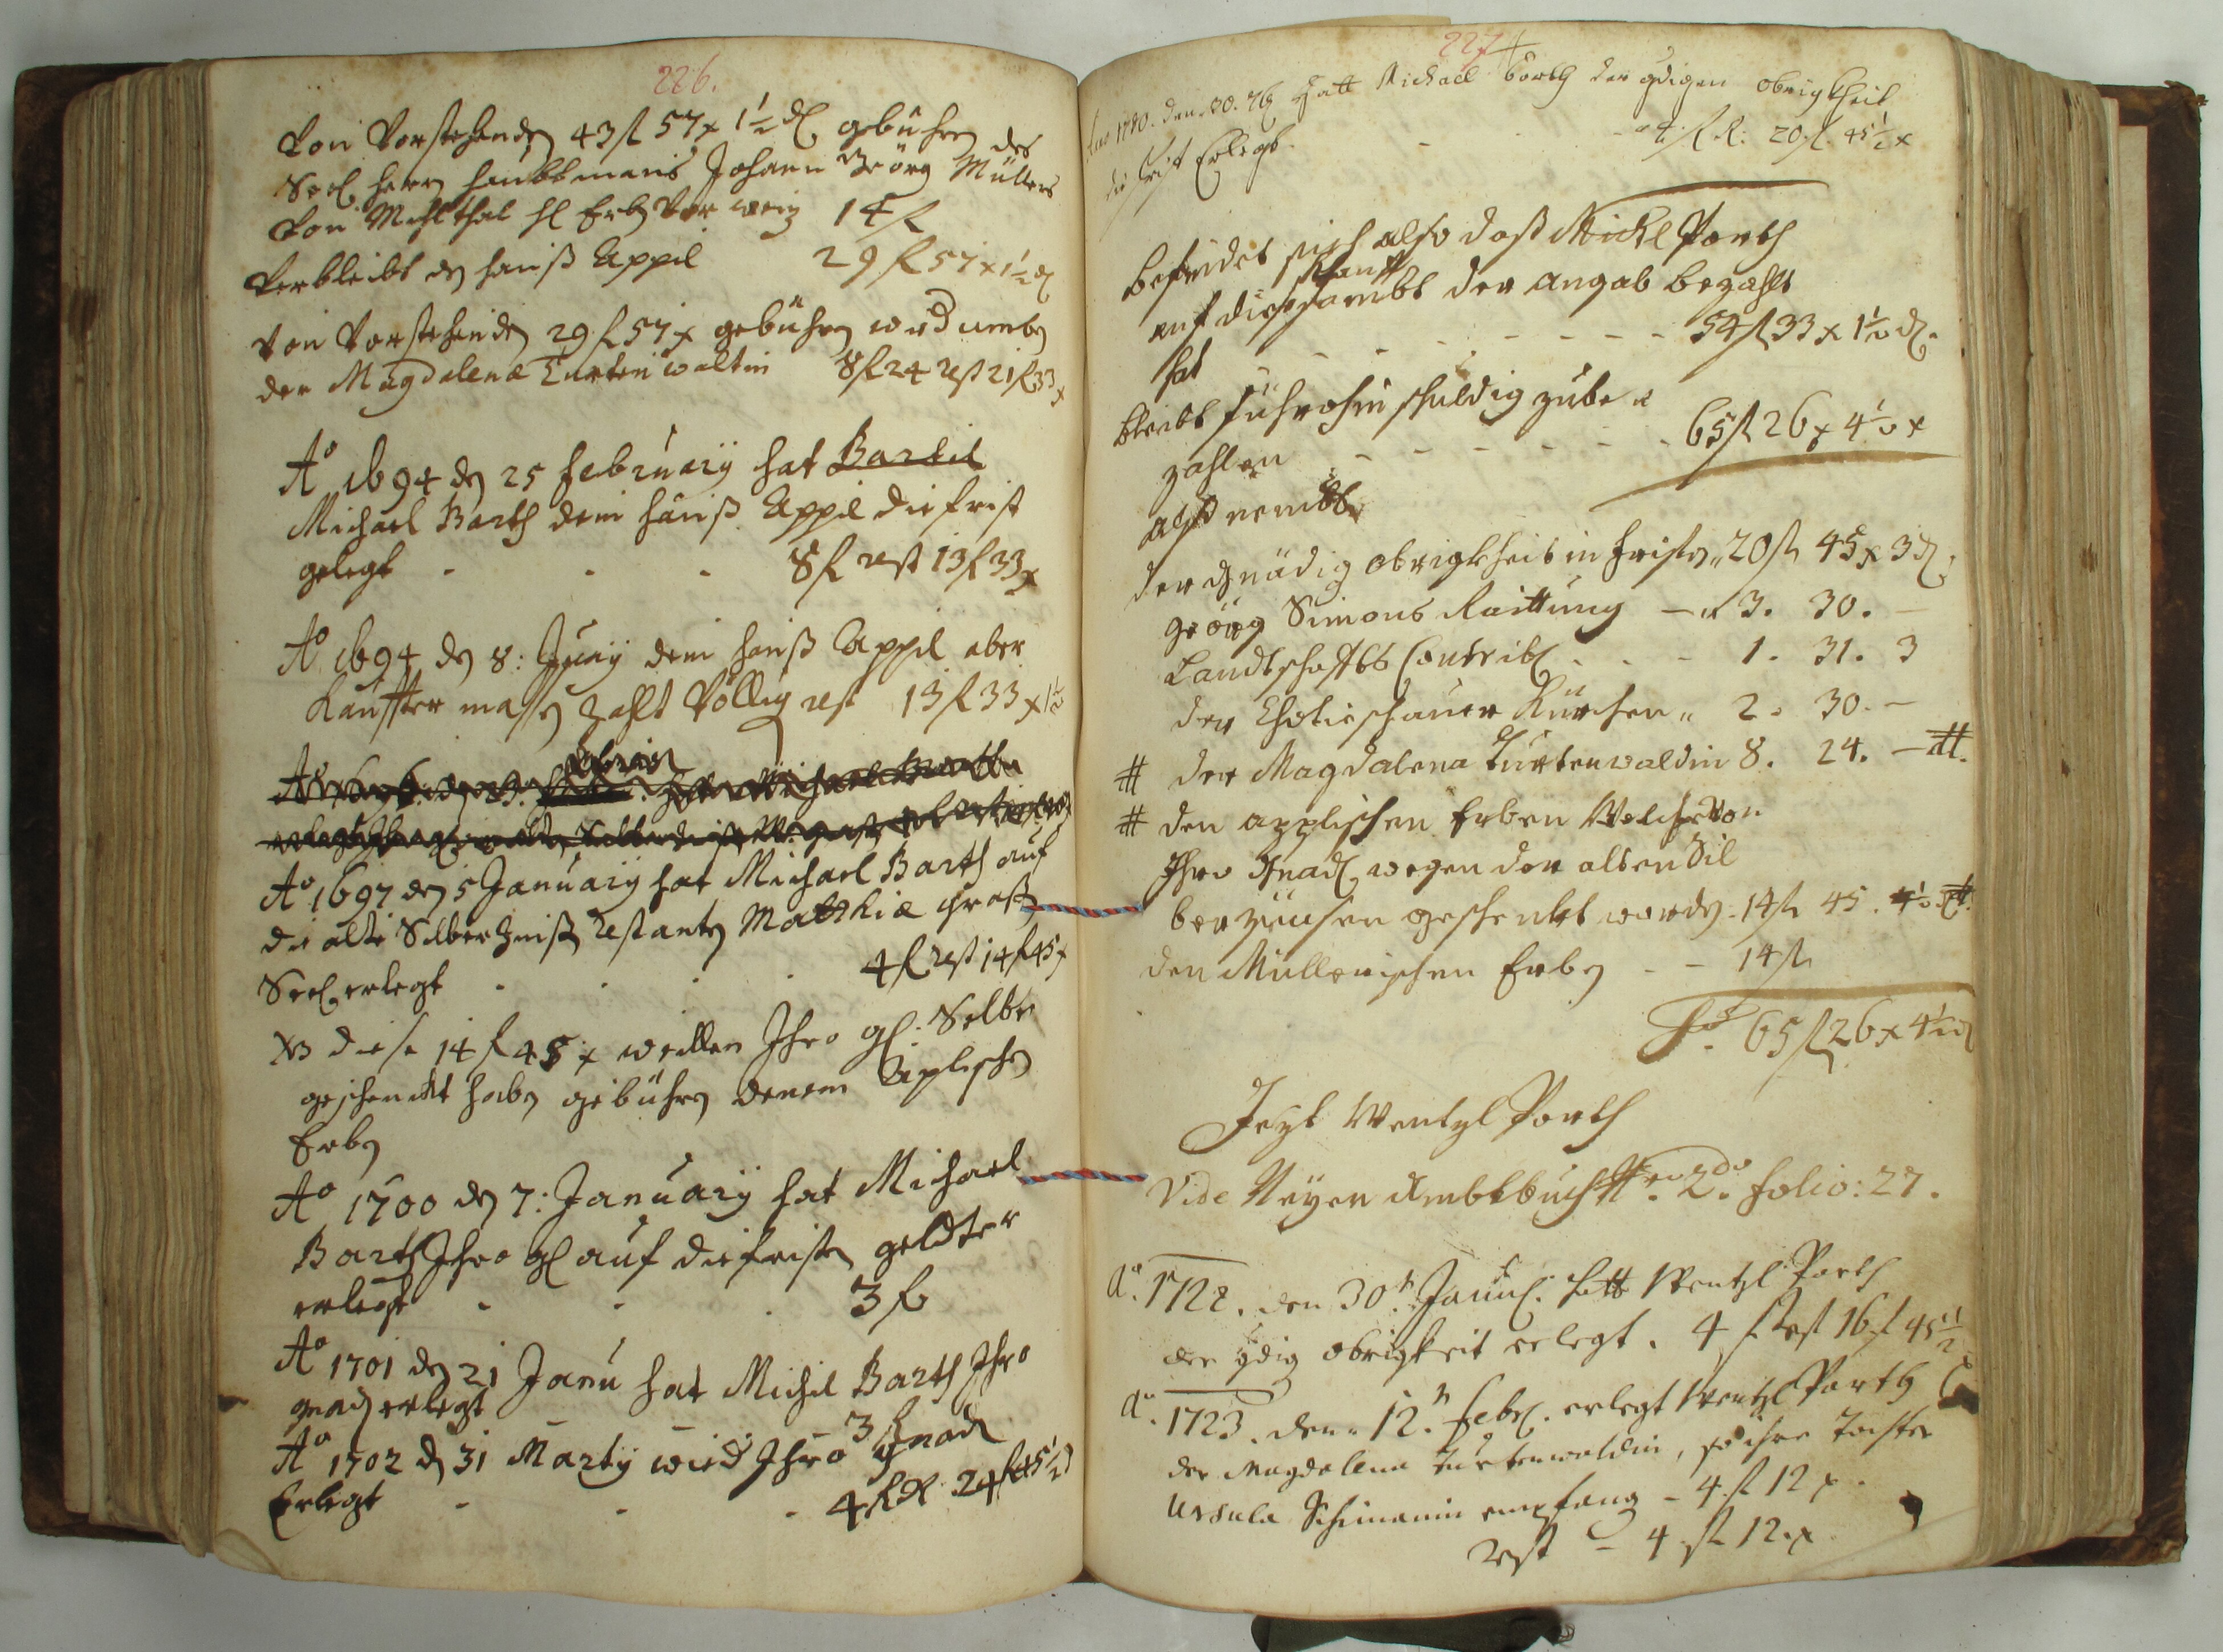 226.
Von Vorstehendn 43 f 57 x 1½ d gebühren des
Seel. Herrn Haubtmans Johann Geörg Müllers
Von Mühlthal Erbn
14 f
Verbleibt dn Hanß Appil 29 f 57 x 1½ d
Von Vorstehendn 29 f 57 x gebührn
der Magdalena Turtenwaltin 8 f 24 rest 21 f 33 x
Ao 1694 dn 25 February hat Bartil
Michael Barth dem Hanß Appil die frist
gelegt - - - 8 f rest 13 f 33 x
Ao 1694 dn 8: dem Hanß Appil aber
Kauffter massn zahlt Völlig rest 13 f 33 x 1½
Ao 1697 dn 5 January hat Michael Barth auf
die alte Silber Zinß restantn Matthiæ Groß
Seel. erlegt - - - 4 f rest 14 f 45 x
NB diese 14 f 45 x weillen Ihro gl: Selbe
geschenckt habn gebührn denem Aplischn
Erbn
Ao 1700 dn 7: January hat Michael
Barth Ihro gl auf die fristn geldter
erlegt - - - 3 f
Ao 1701 dn 21 Janu hat Michel Barth Ihro
gnad erlegt 3 f
Ao 1702 d 31 Marty wird Ihro Gnad
Erlegt - - - 4 f R 24 f 45½
227
Ao 1720. den 30. hatt Michael Barth der gdigen Obrigkheit
die frist Erlegt. - - 4 f R: 20 f. 45½ x
Befindet sich also daß Michl Parth
Kauff
auf diese der angab bezahlt
hat - - - - - - 54 f 33 x 1½ d.
bleibt führohin schuldig zube=
zahlen - - - - - 65 f 26 x 4½ x
alß nemblich
der Gnädig Obrigkheit in fristn 20 f 45 x 3 d
Geörg Simons Raittung - 3. 30. -
Landtschaffts Contrib. - - 1. 31. 3
der Kürchen 2. 30. -
# der Magdalena Turtenwaldin 8. 24. - #.
# den applischen Erben Welche Von
Ihro Gnad. wegen der alten Sil
ber zünsen geschenkt wordn. 14 f 45. 1½ #.
den Müllerischen Erbn - - 14 f
Sa. 65 f 26 x 4½ d
Jezt Wentzl Parth
Vide Neyen Ambtbuch No. 2do. folio: 27.
Ao. 1722. den 30n. Janu. hatt Wentzl Parth
der gdig Obrigkeit erlegt. 4 f Rest 16 f 45½ x
Ao. 1723. den 12n. Febr. erlegt Wentzl Parth
der Magdalena Turtenwaldin, so ihre Tochter
Ursula Schimanin empfang - 4 f 12 x.
rest - 4 f 12 x